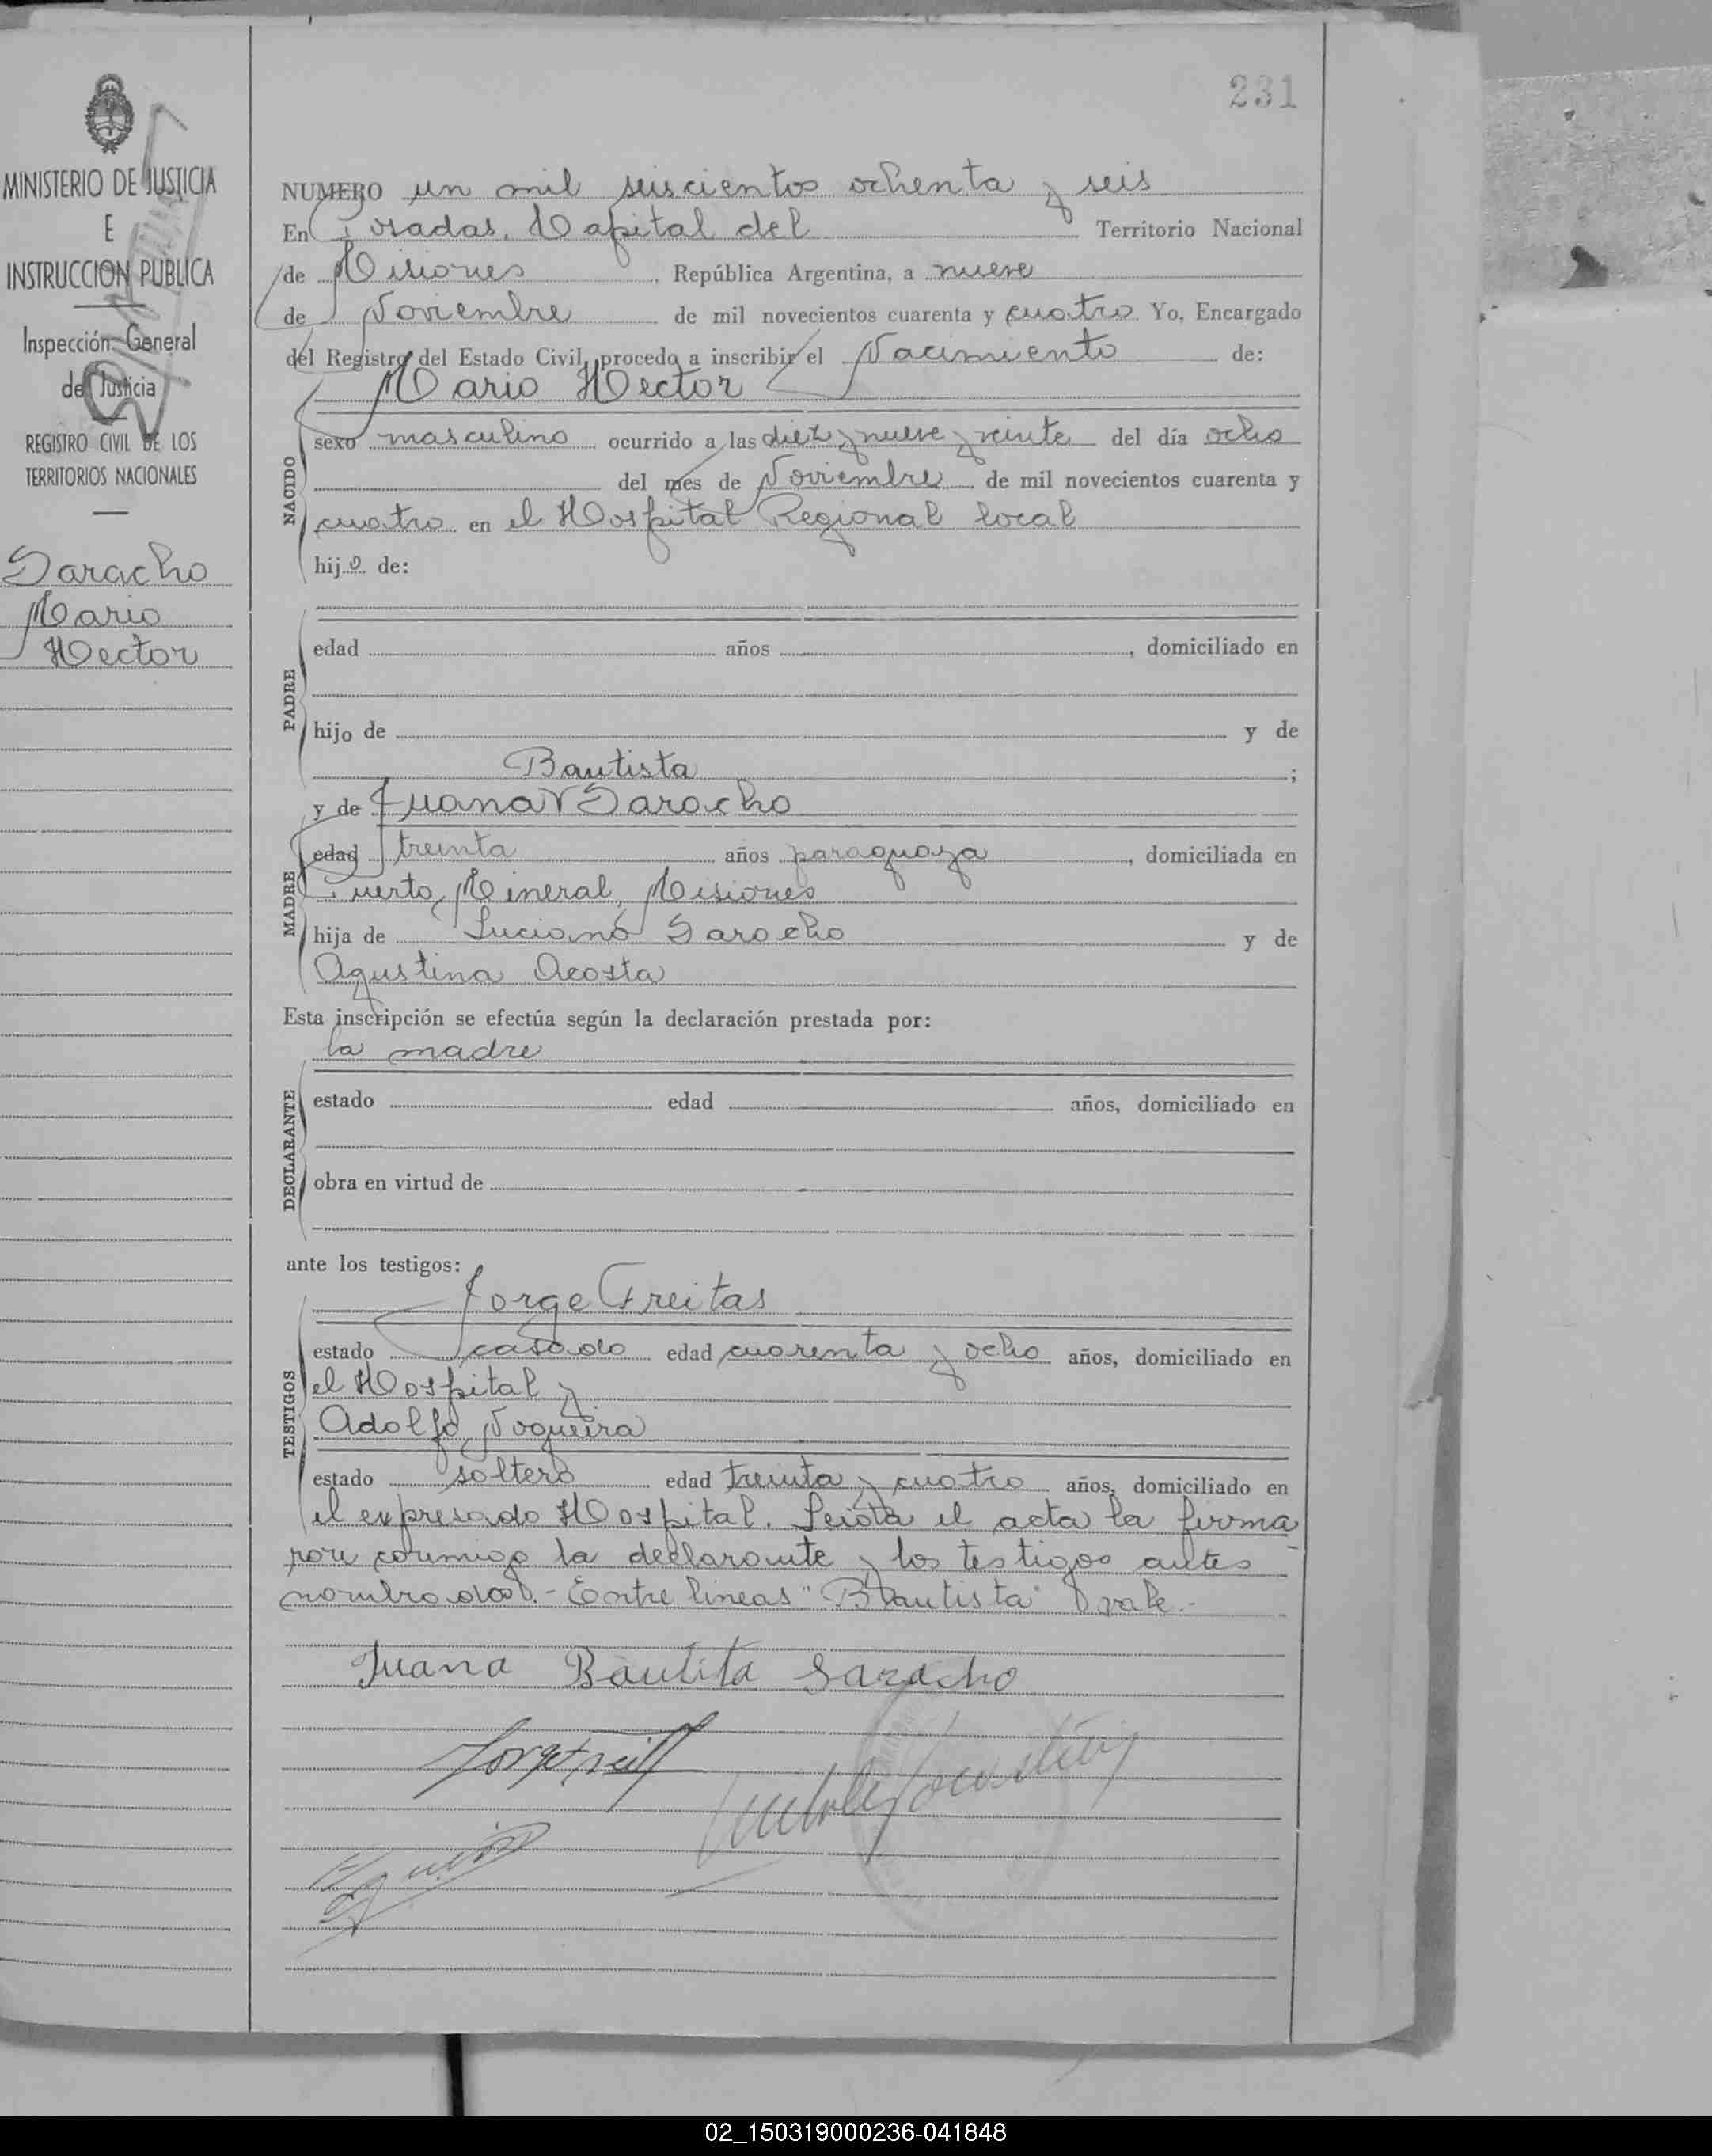 231
MINISTERIO DE JUSTICIA
E
INSTRUCCION PUBLICA
Inspección General
de Justicia
REGISTRO CIVIL DE LOS
TERRITORIOS NACIONALES
Saracho
Mario
Hector
NUMERO un mil seiscientos ochenta y seis
En Posadas, Capital del Territorio Nacional
de Misiones, República Argentina, a nueve
de Noviembre de mil novecientos cuarenta y cuatro Yo, Encargado
del Registro del Estado Civil, procedo a inscribir el Nacimiento de:
Mario Hector
NACIDO
sexo masculino ocurrido a las diez y nueve y veinte del día ocho
del mes de Noviembre de mil novecientos cuarenta y
cuatro en el Hospital Regional local
hijo de:
PADRE
edad años , domiciliado en
hijo de y de
Bautista ;
y de Juana Saracho
MADRE
edad treinta años paraguaya, domiciliada en
Puerto Mineral, Misiones
hija de Luciano Saracho y de
Agustina Acosta
Esta inscripción se efectúa según la declaración prestada por:
la madre
DECLARANTE
estado edad años, domiciliado en
obra en virtud de
ante los testigos:
Jorge Freitas
TESTIGOS
estado casado edad cuarenta y ocho años, domiciliado en
el Hospital y
Adolfo Nogueira
estado soltero edad treinta y cuatro años, domiciliado en
el expresado Hospital. Leída el acta la firma
ron conmigo la declarante y los testigos antes
nombrados.- Entre lineas "Bautista" vale.-
Juana Bautita Saracho
02_150319000236-041848